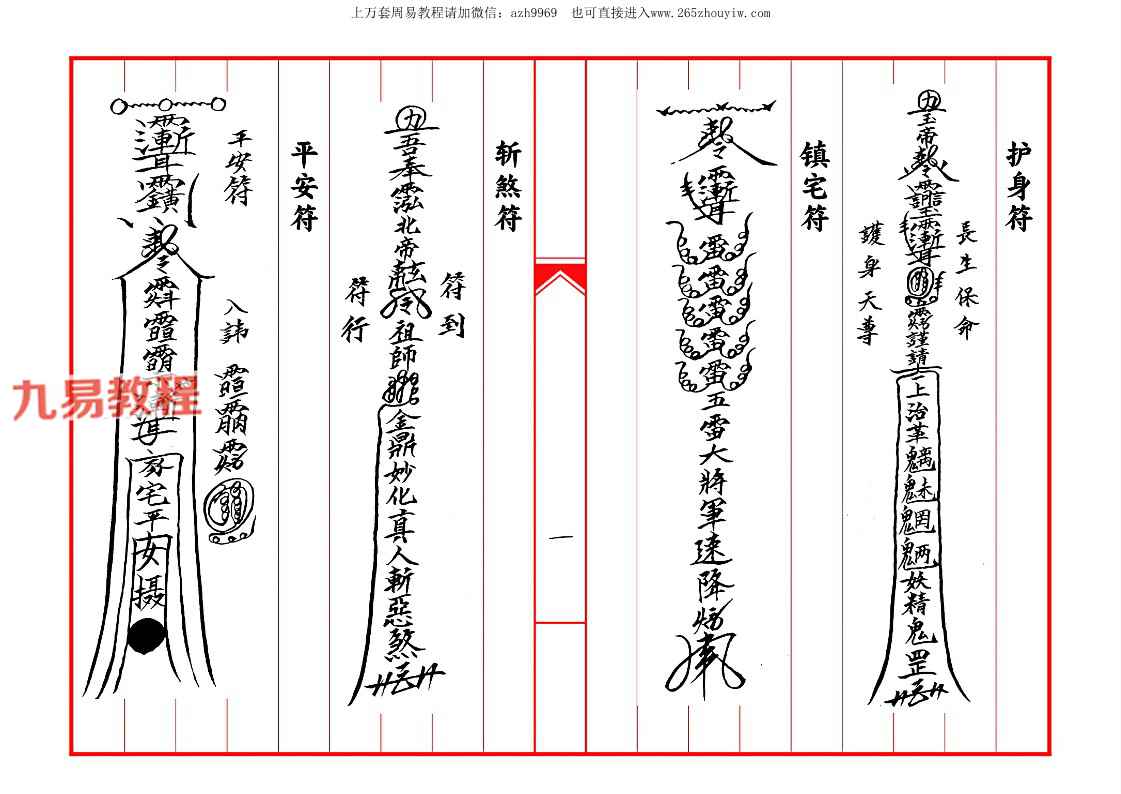 上万套周易教程请加微信：azh9969　也可直接进入www.265zhouyiw.com
护身符
長生保命
玉帝
謹請
上治革魑魅魍魎妖精鬼罡
護身天尊
镇宅符
雷雷雷雷雷五雷大將軍速降
一
斩煞符
符到
吾奉
北帝
祖師
金鼎妙化真人斬惡煞
符行
平安符
平安符
入諱
家宅平安摄
九易教程